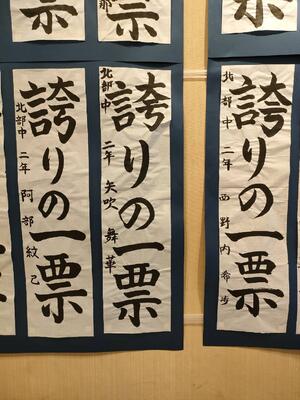 票
票
那
票
誇りの一票
北部中 二年 西野内希歩
誇りの一票
北部中 二年 矢吹舞華
誇りの一票
北部中 二年 阿部紋己